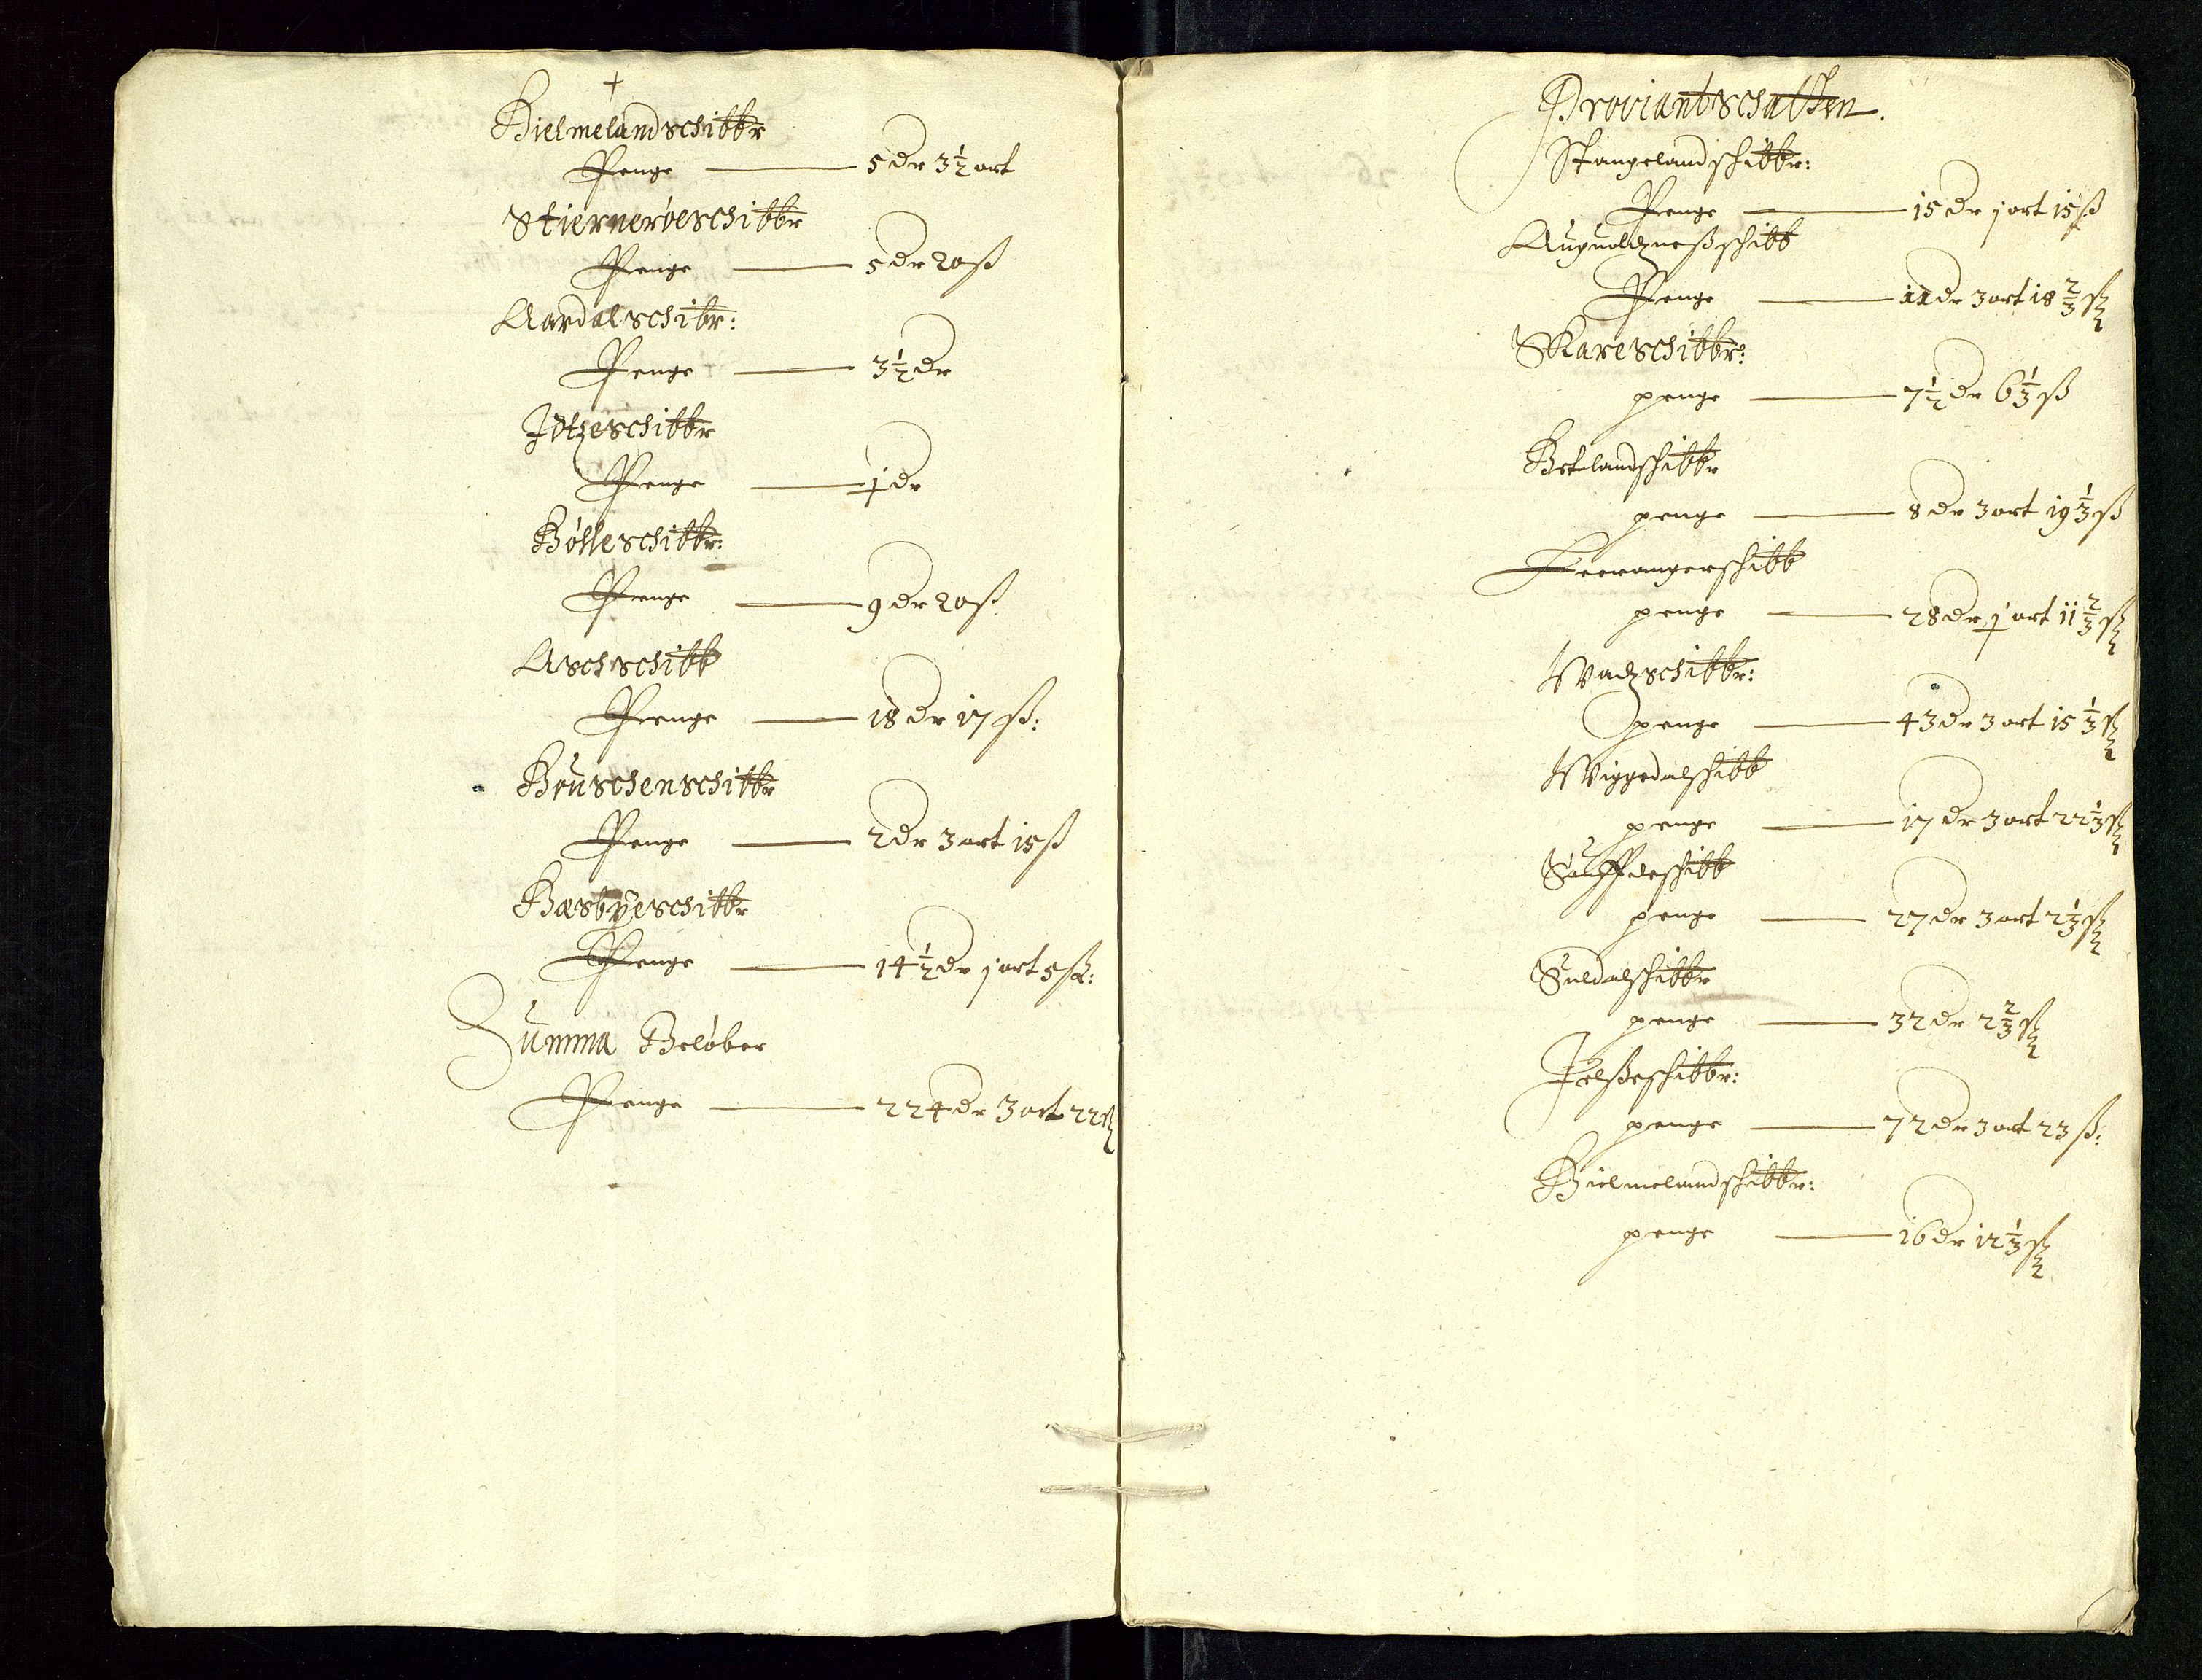 +
Hielmelandschibbr
Penge 5 dr 3½ ort
Stierneröeschibbr
Penge 5 dr 20 ß
Aardalschibr:
Penge 3½ dr
Idtzeschibbr
Penge 1 dr
Bölleschibbr:
Penge 9 dr 20 ß
Aschschibb
Penge 18 dr 17 ß:
Bruschenschibbr
Penge 2 dr 3 ort 15 ß
Hæsbyeschibbr
Penge 14½ dr j ort 5 ß:
Summa Beløber
Penge 224 dr 3 ort 22 ß
Proviantschatten.
Stangelandschibbr:
Penge 15 dr j ort 15 ß
Auguoldzneßschibb
Penge 11 dr 3 ort 18 2/3 ß
Skareschibbr:
penge 7½ dr 6 1/3 ß
Hetlandschibbr
penge 8 dr 3 ort 19 1/3 ß
penge 28 dr j ort 11 2/3 ß
Wadzschibbr:
penge 43 dr 3 ort 15 1/3 ß
Wiggedalschibb
penge 17 dr 3 ort 22 1/3 ß
Sauffdeschibb
penge 27 dr 3 ort 2 1/3 ß
Suldalschibbr
penge 32 dr 2 2/3 ß
Jelßeschibbr:
penge 72 dr 3 ort 23 ß:
Hielmelandschibbr:
penge 16 dr 12 1/3 ß